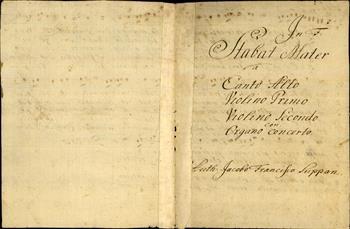 In F.
Stabat Mater
a
Canto Alto
Violino Primo
Violino Secondo
con
Organo Concerto.
Auth. Jacobo Francisco Suppan.